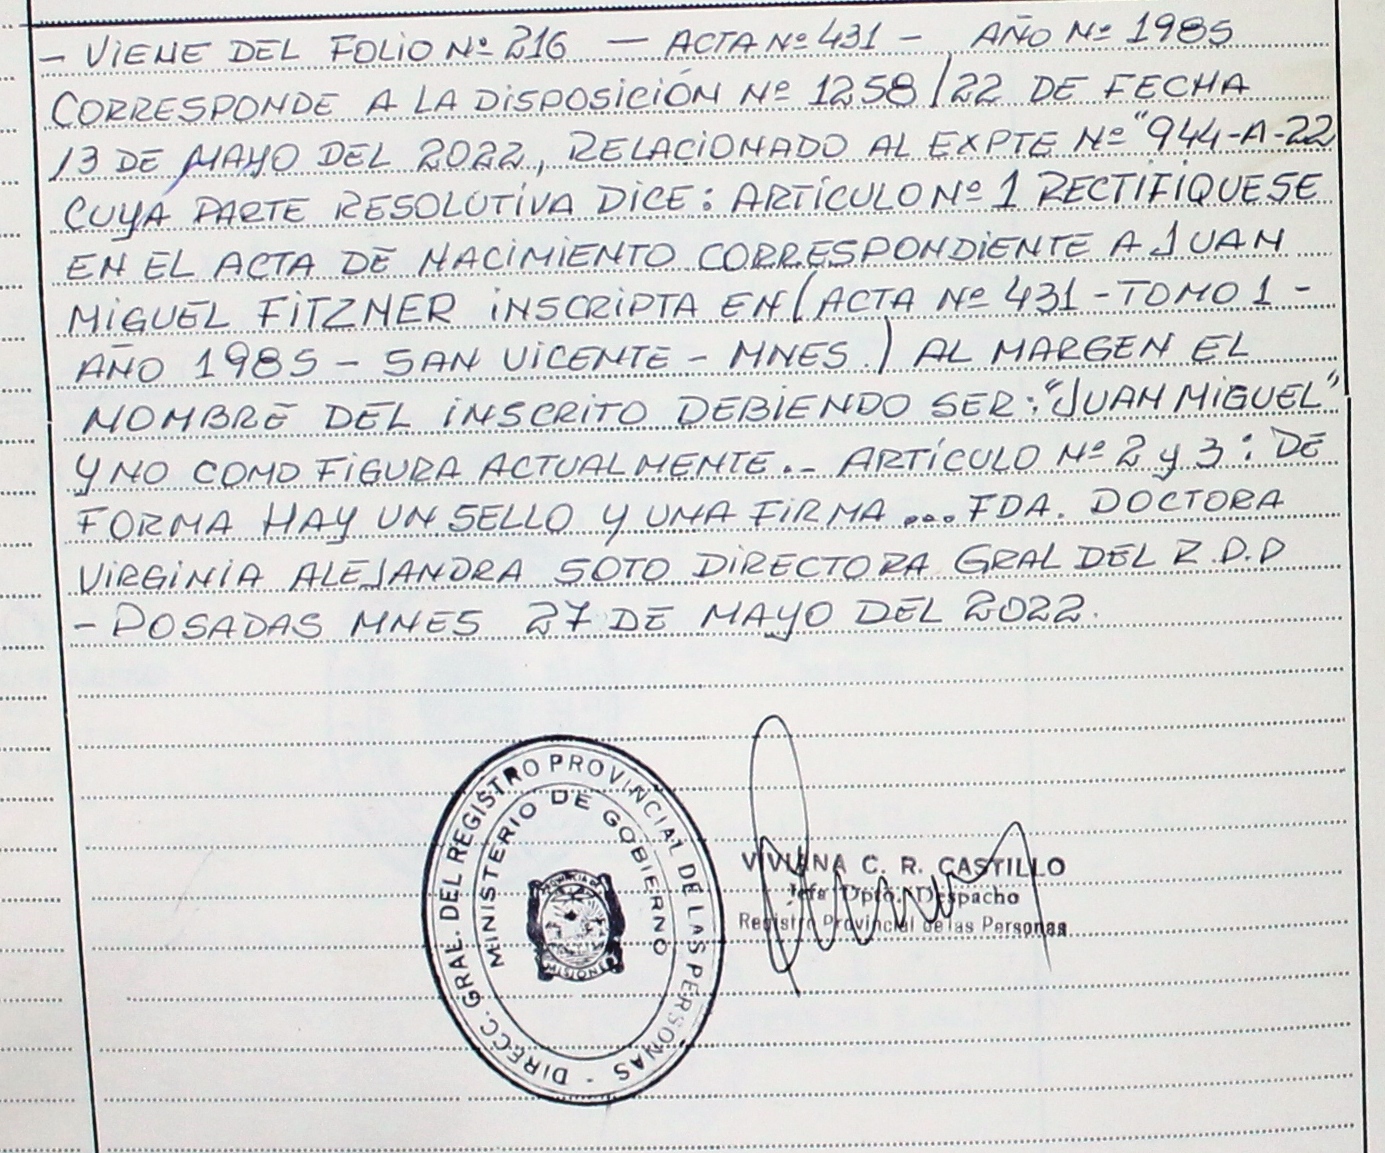 - VIENE DEL FOLIO Nº 216 — ACTA Nº 431 - AÑO Nº 1985
CORRESPONDE A LA DISPOSICIÓN Nº 1258/22 DE FECHA
13 DE MAYO DEL 2022, RELACIONADO AL EXPTE Nº "944-A-22
CUYA PARTE RESOLUTIVA DICE: ARTÍCULO Nº 1 RECTIFÍQUESE
EN EL ACTA DE NACIMIENTO CORRESPONDIENTE A JUAN
MIGUEL FITZNER INSCRIPTA EN (ACTA Nº 431 - TOMO 1 -
AÑO 1985 - SAN VICENTE - MNES.) AL MARGEN EL
NOMBRE DEL INSCRITO DEBIENDO SER: "JUAN MIGUEL"
Y NO COMO FIGURA ACTUALMENTE.. ARTÍCULO Nº 2 y 3: DE
FORMA HAY UN SELLO Y UNA FIRMA ... FDA. DOCTORA
VIRGINIA ALEJANDRA SOTO DIRECTORA GRAL DEL R.P.P
- POSADAS MNES 27 DE MAYO DEL 2022.
DIRECC. GRAL. DEL REGISTRO PROVINCIAL DE LAS PERSONAS -
MINISTERIO DE GOBIERNO
PROVINCIA DE
MISIONES
VIVIANA C. R. CASTILLO
Jefa Dpto. Despacho
Registro Provincial de las Personas